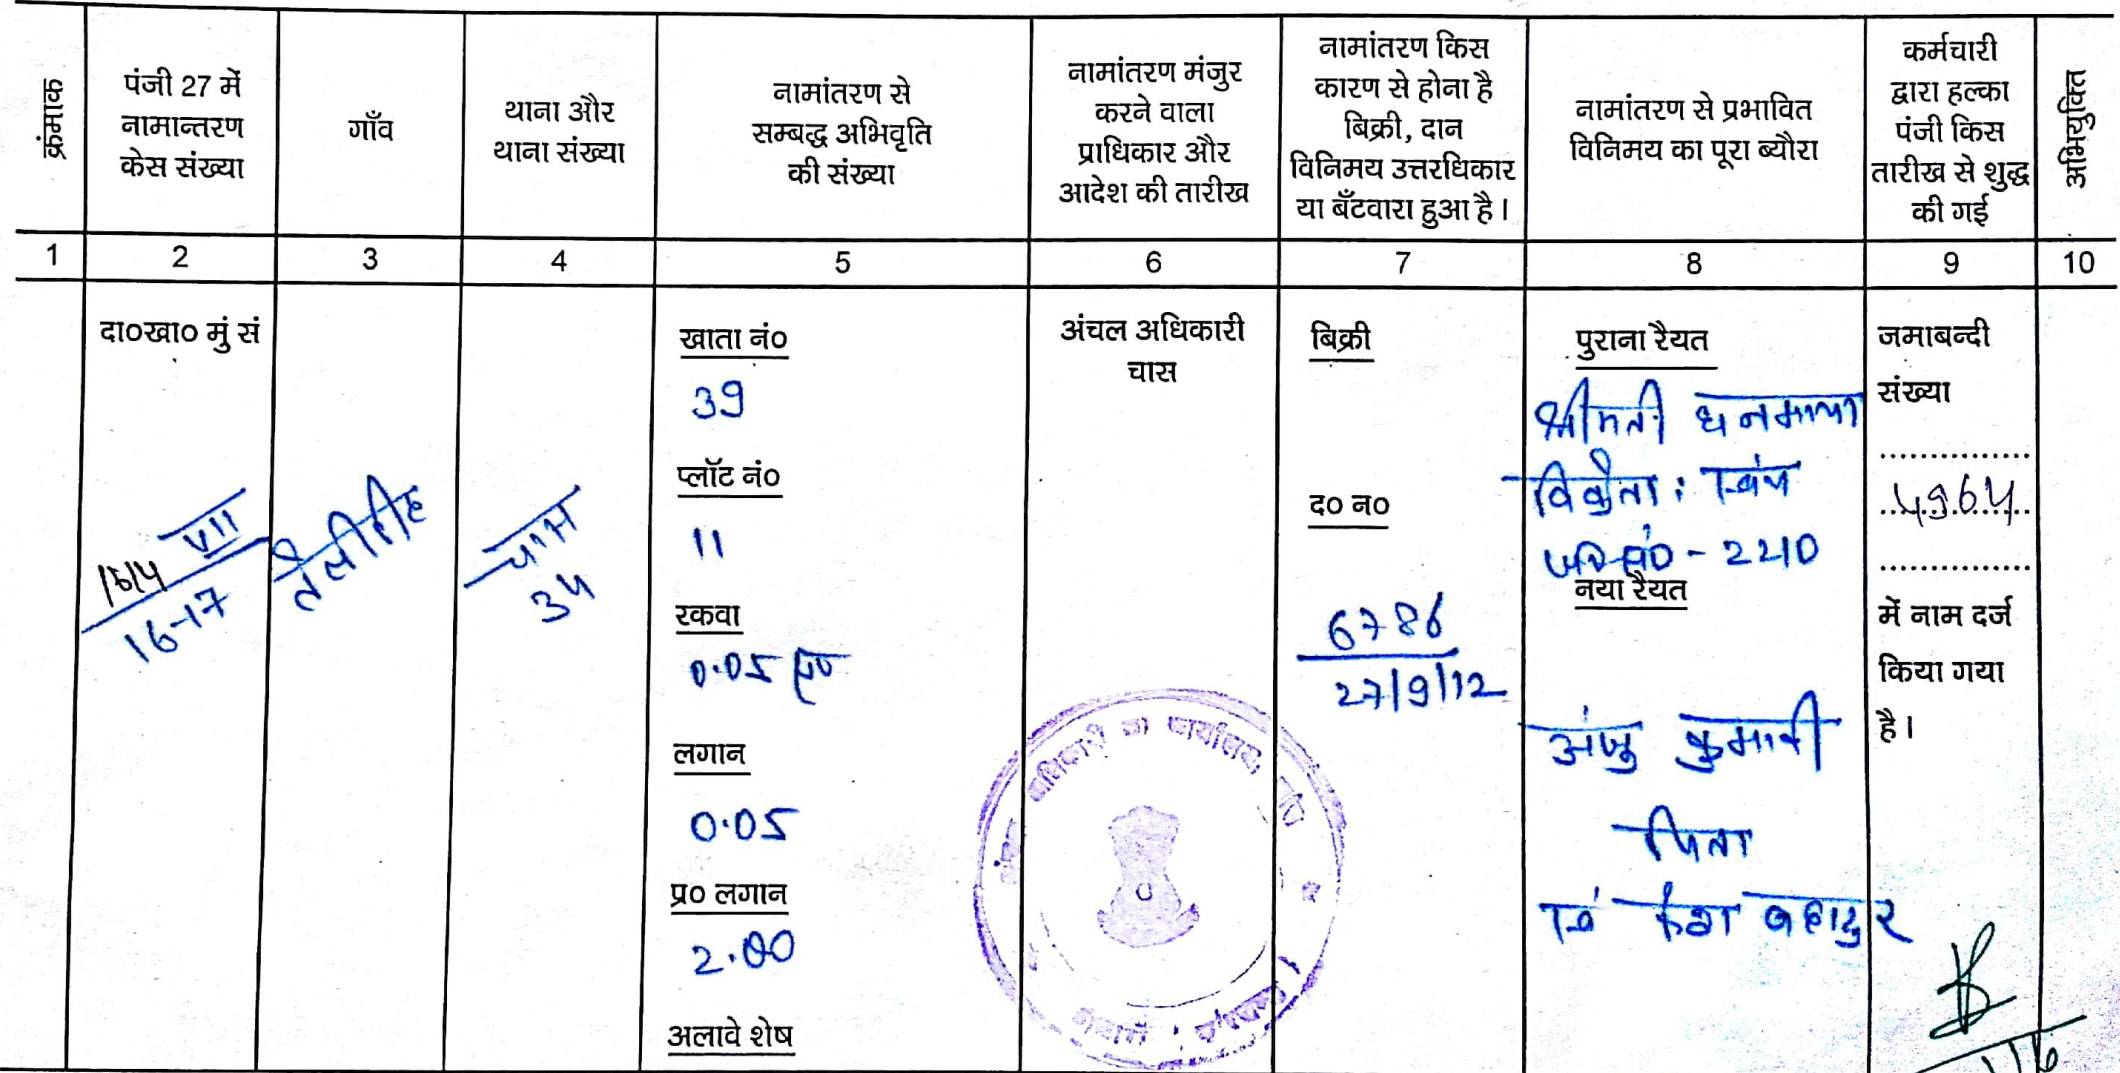 क्रंमाक
पंजी 27 में
नामान्तरण
केस संख्या
गाँव
थाना और
थाना संख्या
नामांतरण से
सम्बद्ध अभिवृति
की संख्या
नामांतरण मंजुर
करने वाला
प्राधिकार और
आदेश की तारीख
नामांतरण किस
कारण से होना है
बिक्री, दान
विनिमय उत्तरधिकार
या बँटवारा हुआ है।
नामांतरण से प्रभावित
विनिमय का पूरा ब्यौरा
कर्मचारी
द्वारा हल्का
पंजी किस
तारीख से शुद्ध
की गई
अभियुक्ति
1 2 3 4 5 6 7 8 9 10
दा०खा० मुं सं
VII
16-17
तेलीडीह
चास
34
खाता नं०
39
प्लॉट नं०
11
रकवा
0.05 ए०
लगान
0.05
प्र० लगान
2.00
अलावे शेष
अंचल अधिकारी
चास
बिक्री
द० न०
6786
27/9/12
पुराना रैयत
श्रीमती धनमाया
विक्रेता : स्वंय
- 2210
नया रैयत
अंजु कुमारी
पिता
बहादुर
जमाबन्दी
संख्या
4964
में नाम दर्ज
किया गया
है।
का कार्यालय